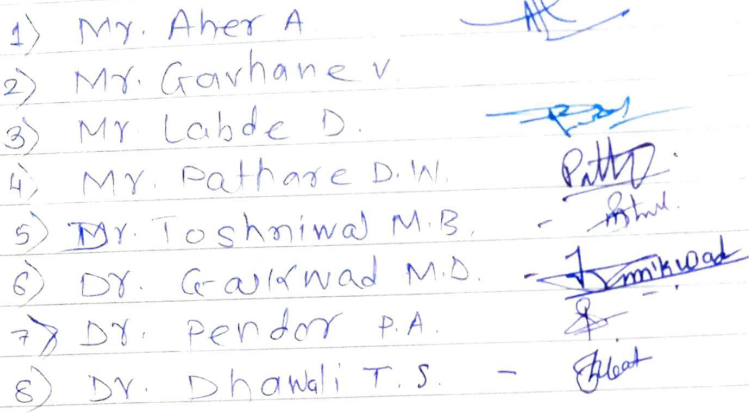 1) Mr. Aher A
2) Mr. Gavhane V
3) Mr Labde D.
4) Mr. Pathare D.W.
5) Dr. Toshniwal M.B. -
6) Dr. Gaikwad M.D. -
7) Dr. Pendor P.A.
8) Dr. Dhawali T.S. -